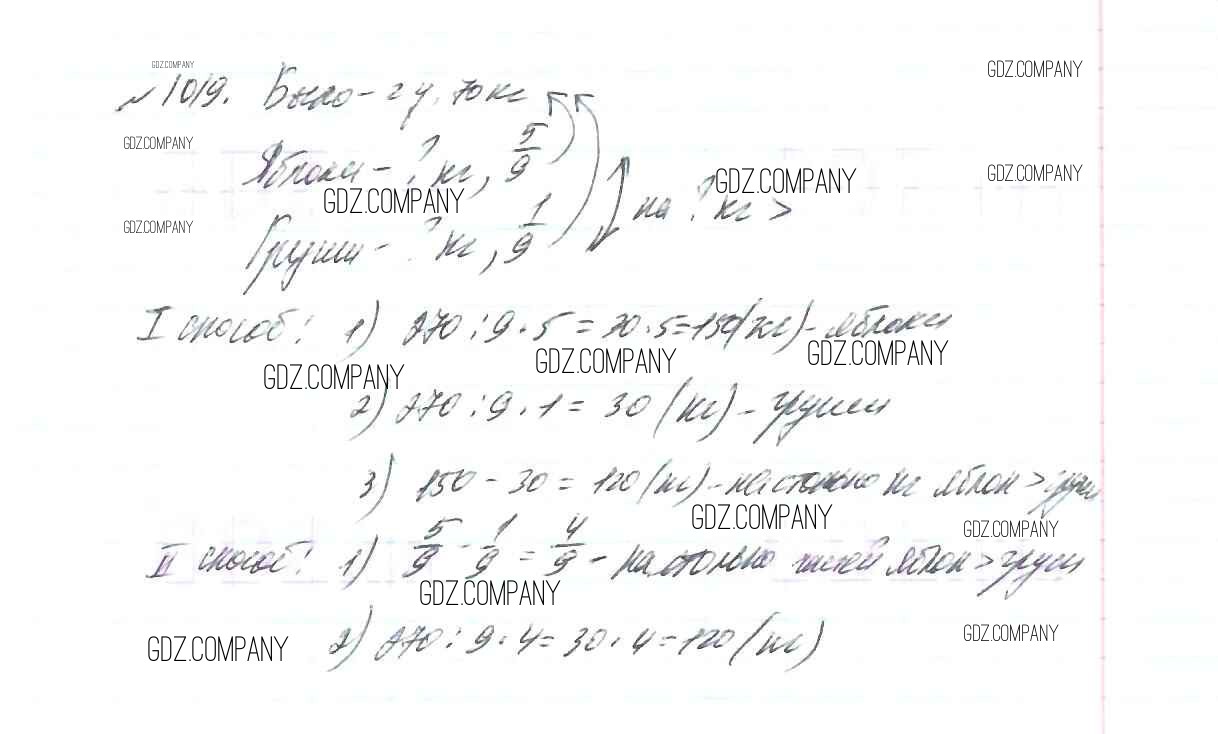 GDZ.COMPANY
№1019. Было - 2 ц. 70 кг
GDZ.COMPANY
GDZ.COMPANY
Яблоки - ? кг, 5/9
GDZ.COMPANY
GDZ.COMPANY
GDZ.COMPANY
на ? кг >
GDZ.COMPANY
Груши - ? кг, 1/9
I способ: 1) 270 : 9 · 5 = 30 · 5 = 150 (кг) - яблоки
GDZ.COMPANY GDZ.COMPANY GDZ.COMPANY
2) 270 : 9 · 1 = 30 (кг) - груши
3) 150 - 30 = 120 (кг) - настолько кг яблок > груш
GDZ.COMPANY GDZ.COMPANY
II способ: 1) 5/9 - 1/9 = 4/9 - настолько частей яблок > груш
GDZ.COMPANY
GDZ.COMPANY
2) 270 : 9 · 4 = 30 · 4 = 120 (кг)
GDZ.COMPANY